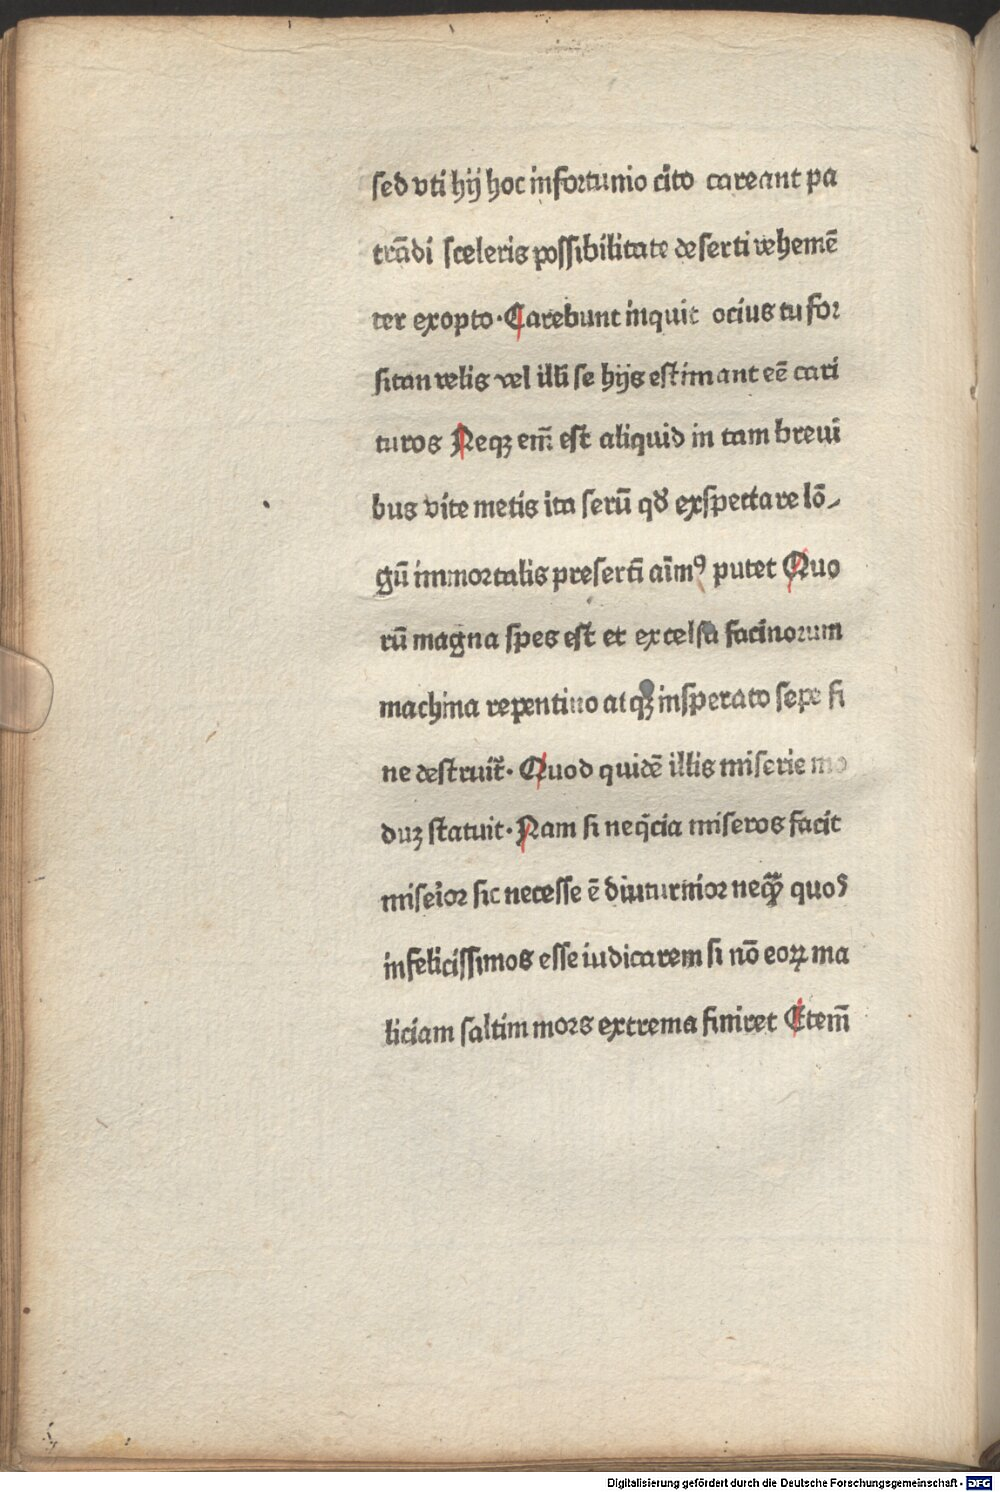 sed vti hij hoc infortunio cito careant pa
trādi sceleris possibilitate deserti vehemē
ter exopto. Carebunt inquit ocius tu for
sitan velis vel illi se hijs estimant eē cari
turos Neqꝫ em̄ est aliquid in tam breui
bus vite metis ita serū qď exspectare lō⸗
gū immortalis presertī aīmꝰ putet Quo
rū magna spes est et excelsa facinorum
machina repentino atqꝫ insperato sepe fi
ne destruit̄. Quod quidē illis miserie mo
duꝫ statuit. Nam si neq̄cia miseros facit
miserior sic necesse ē diuturnior neqꝫ quos
infelicissimos esse iudicarem si nō eoꝝ ma
liciam saltim mors extrema finiret Etem̄
Digitalisierung gefördert durch die Deutsche Forschungsgemeinschaft - DFG